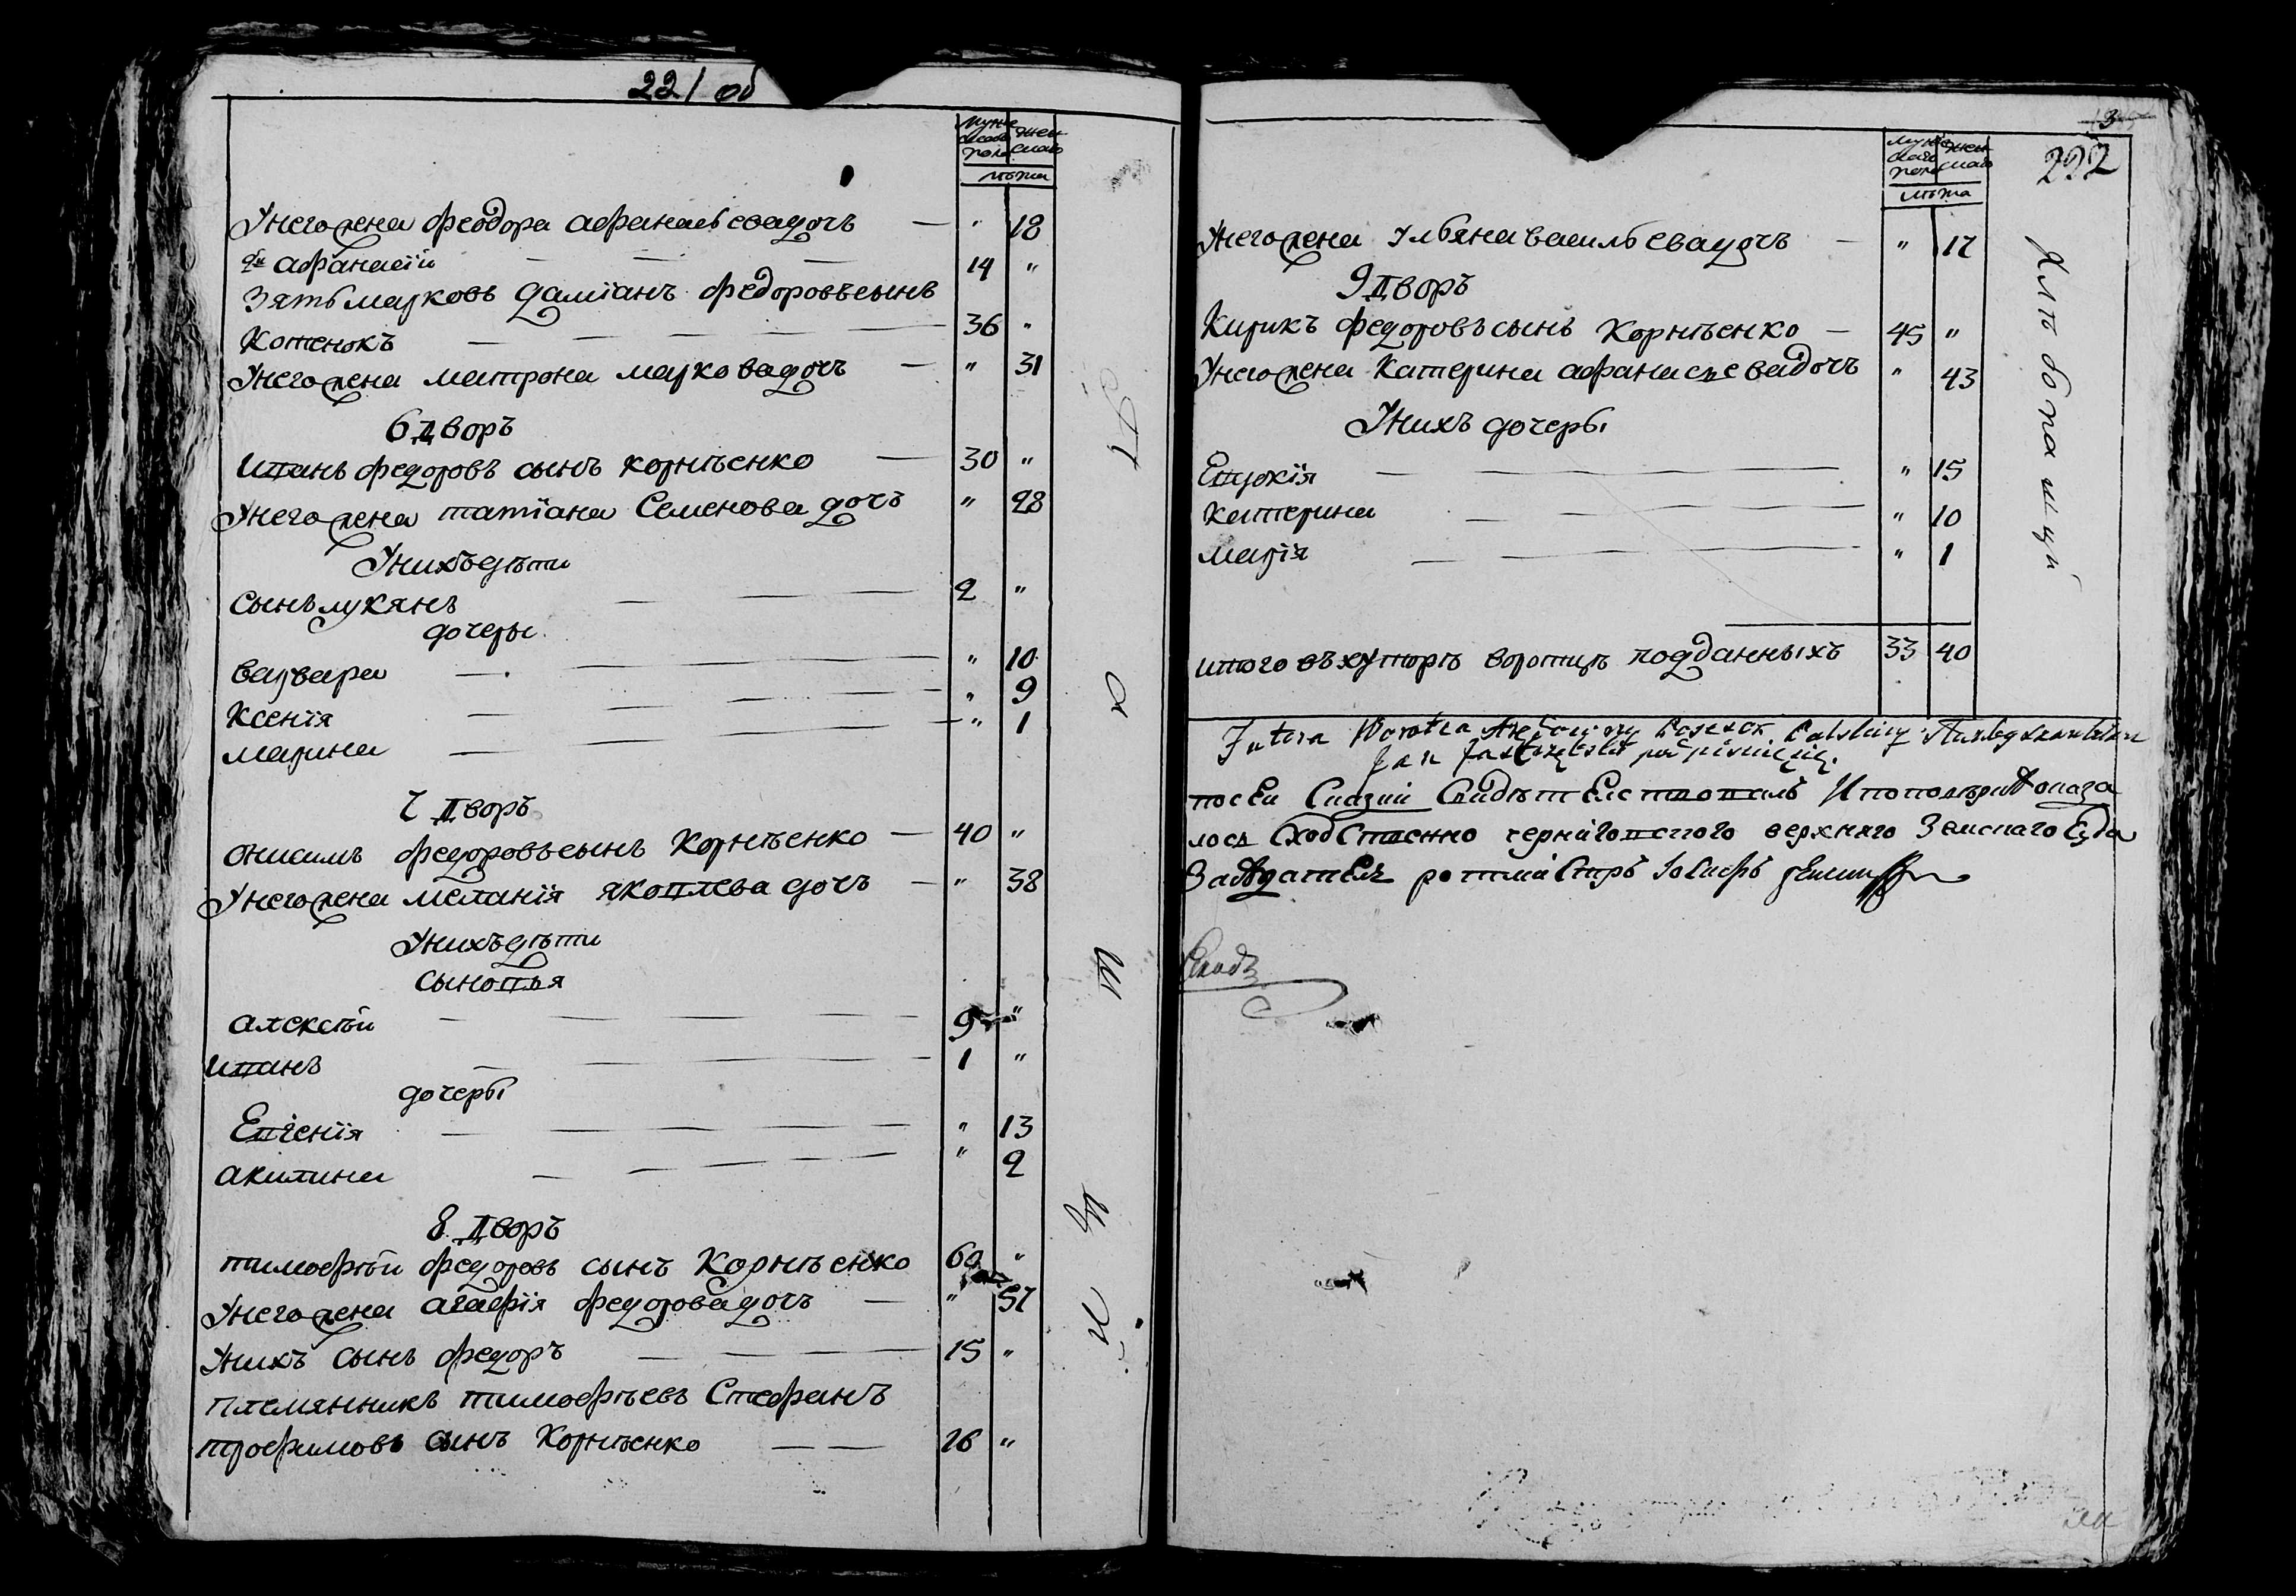 221 об
Мужескаго пола
женскаго
лѣта
У него жена феодора афанасьева дочь — " 18
2й афанасій — — — 14 "
Зять марковъ даміанъ федоровъ сынъ
Котенокъ — — — 36 "
У него жена матрона маркова дочь — " 31
6 дворъ
Иванъ федоровъ сынъ корнѣенко — 30 "
У него жена татіана Семенова дочь " 28
У нихъ дѣти
сынъ лукянъ — — 2 "
дочеры
варвара — — — " 10
Ксенія — — — " 9
марина — — — " 1
7 дворъ
Онисимъ федоровъ сынъ Корнѣенко — 40 "
У него жена меланія яковлева дочь — " 38
У нихъ дѣти
сыновья
алексѣй — — — 9 "
Иванъ — — — 1 "
дочеры
Евгенія — — — " 13
акилина — — — " 2
8 дворъ
тимофѣй федоровъ сынъ Корнѣенко 60 "
У него жена агафія федорова дочь — " 57
У нихъ сынъ федоръ — — — 15 "
племянникъ тимофѣевъ Стефанъ
трофимовъ сынъ Корнѣенко — — 26 "
3
222
Мужескаго пола
женскаго
лѣта
У него жена Ульяна васильева дочь — " 17
9 дворъ
Кирикъ федоровъ сынъ Корнѣенко — 45 "
У него жена Катерина афанасьева дочь " 43
У нихъ дочеры
Евдокія — — — " 15
Катерина — — — " 10
марія — — — " 1
итого въ хуторѣ воротцѣ подданныхъ 33 40
Futora
по сей Сказки Свидѣтелствовалъ И по повѣри оказа
лось Сходственно чернѣговского верхняго Земскаго Суда
Засѣдатель ротмистръ Іосифъ